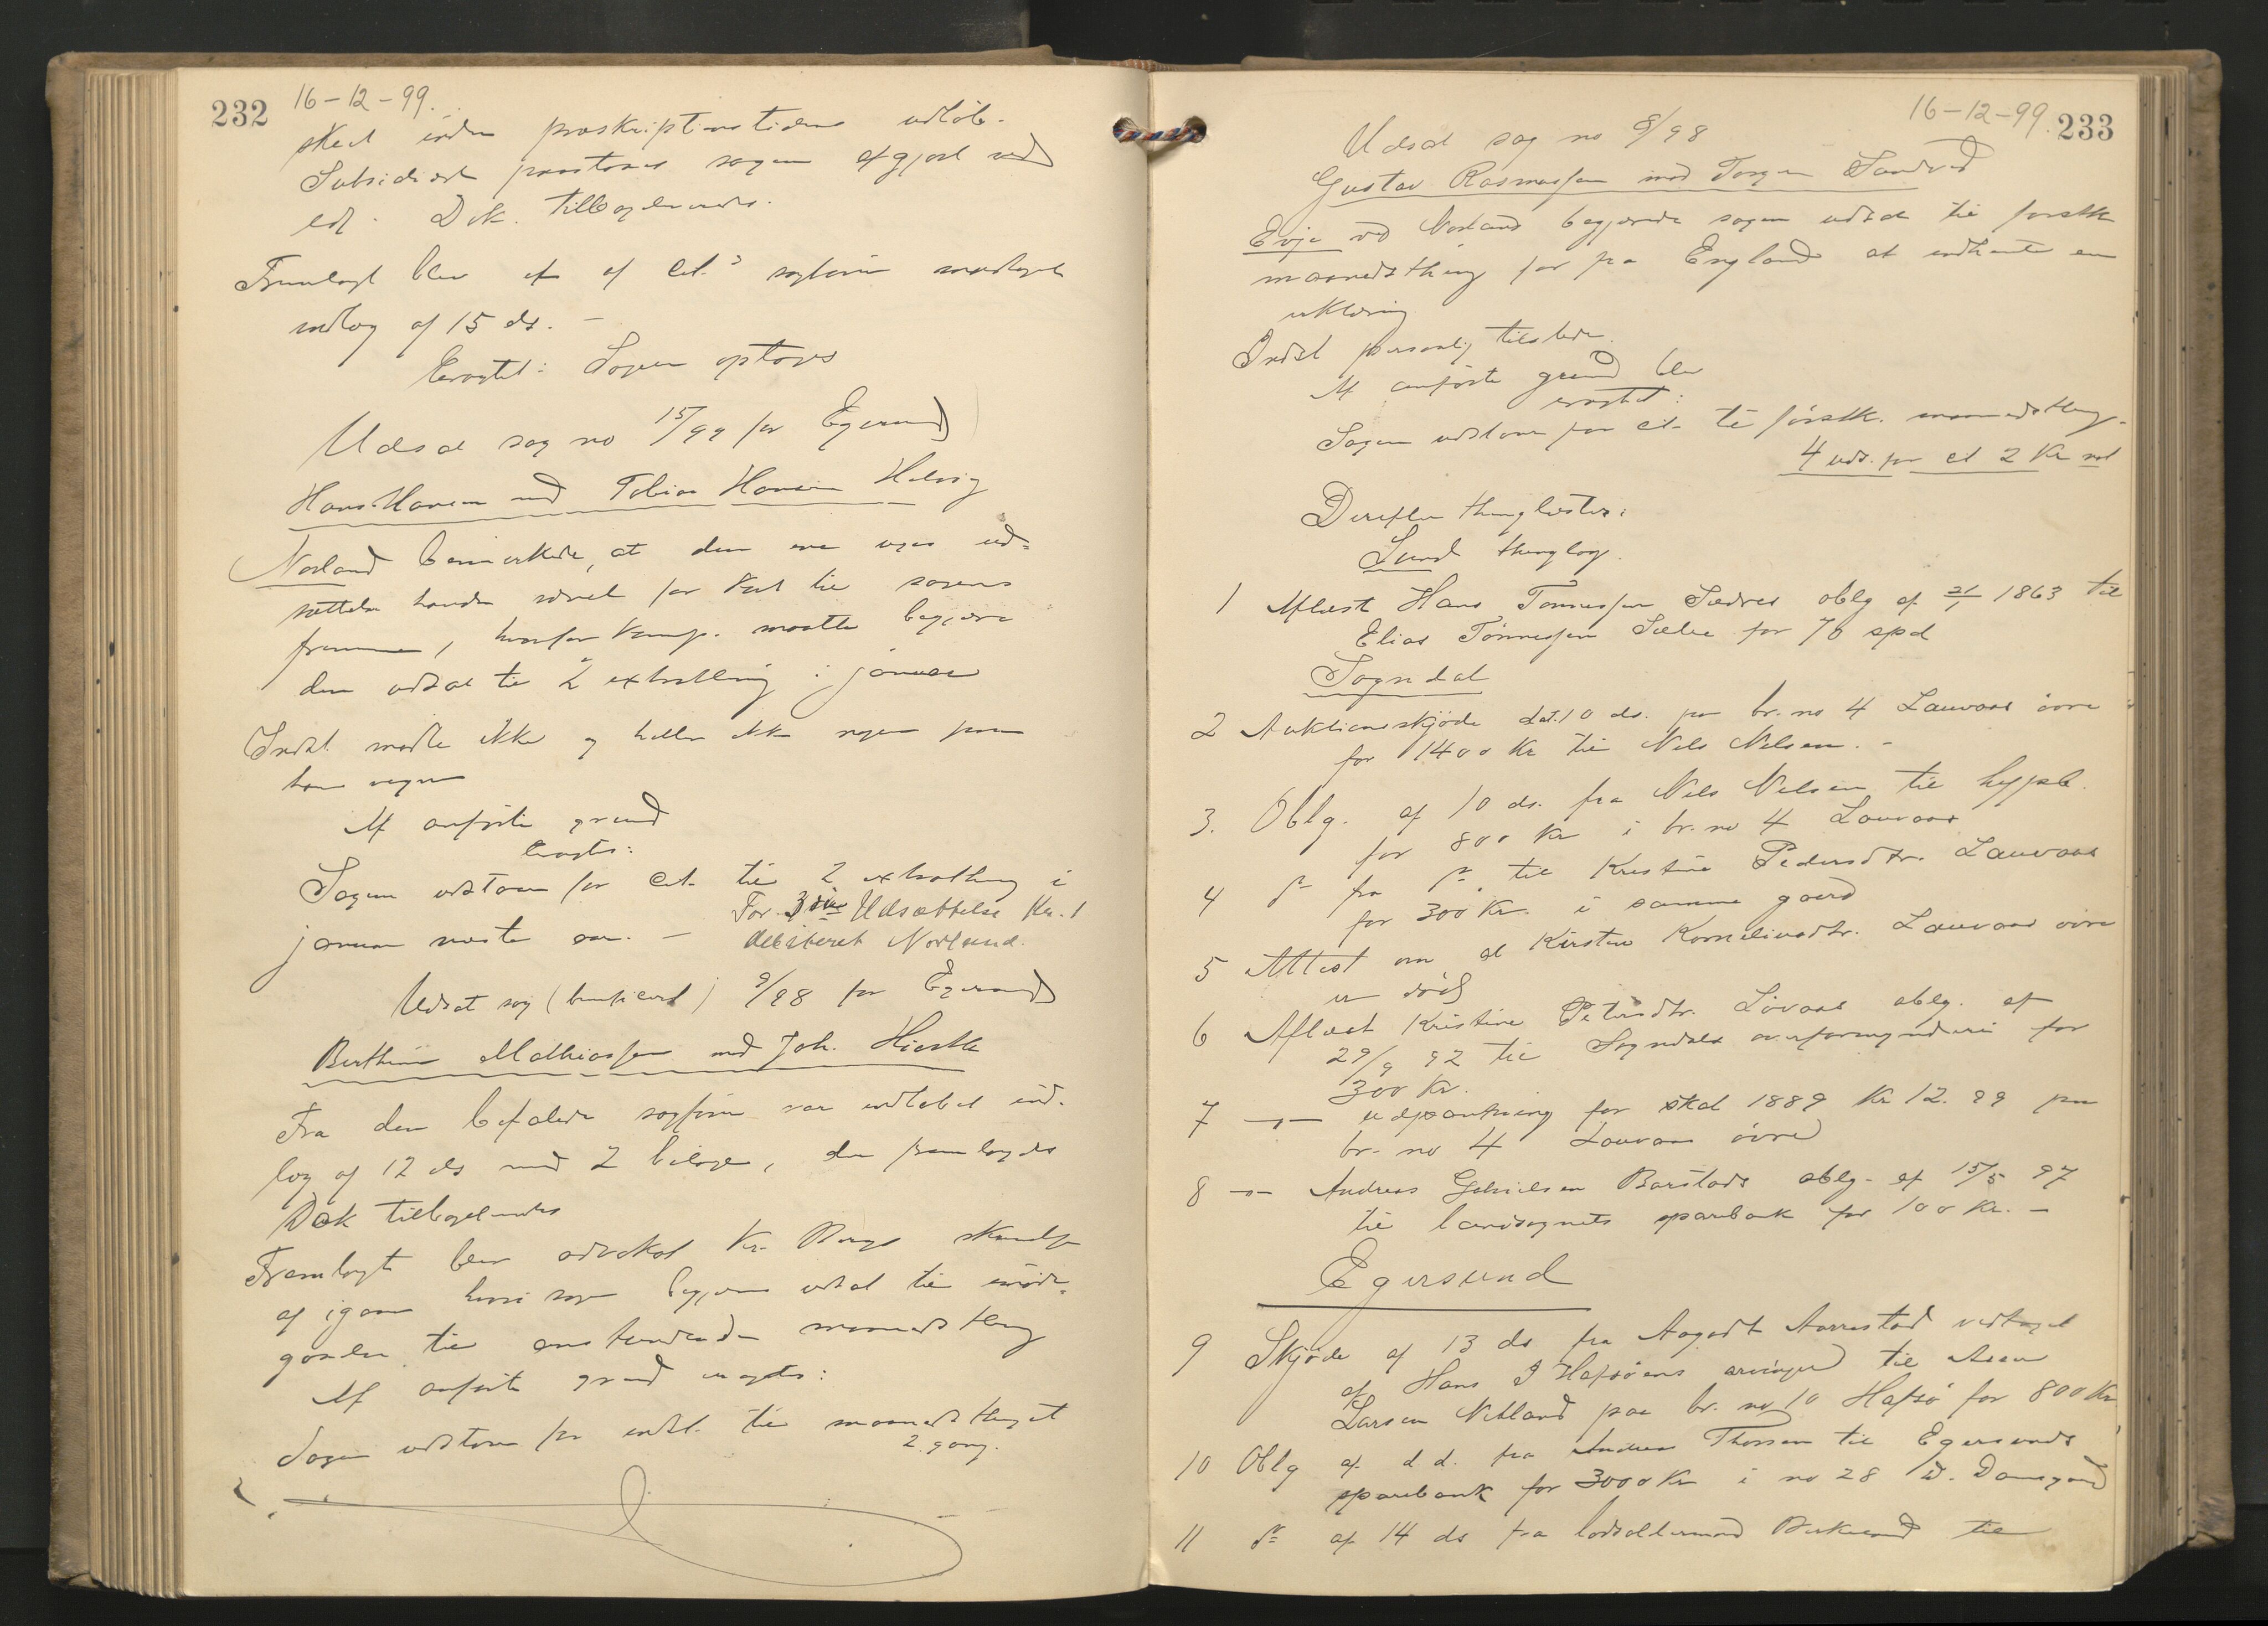 232 16-12-99.
skeet inden præskriptionstidens udløb.
Subsidiært paastaaes sagen afgjort ved
ed. Dok. tilbageleveredes.
Fremlagt blev et af cit.s sagfører modtaget
indlæg af 15 ds. -
Eragtet: Sagen optages
Udsat sag no 15/99 for Egersund
Hans Hansen mod Tobias Hansen Helvig
Norland bemærkede, at den ene uges ud-
sættelse havde været for kort til sagens
fremme, hvorfor komp. maatte begjære
den udsat til 2 extrathing i januar
Indst. mødte ikke og heller ikke nogen paa
hans vegne
Af anførte grund
eragtes:
Sagen udstaar for cit. til 2 extrathing i
januar næste aar. -
For 3die Udsættelse Kr. 1
debiteret Norland.
Udsat sag (beneficeret) 9/98 for Egersund
Berthine Mathiassen mod Joh. Hjorth
Fra den befalede sagfører var indløbet ind-
læg af 12 ds med 2 bilage, der fremlagdes
Dok tilbageleveredes
Fremlagt blev advokat Kr. skrivelse
af igaar hvori sagen begjæres udsat til
til maanedsthing
Af anførte grund eragtes:
Sagen udstaar for indst. til maanedsthinget
2. gang.
16-12-99. 233
Udsat sag no 8/98
Gustav Rasmussen mod Torger Sandved
Evje ved Norland begjærede sagen udsat til førstk
maanedsthing for fra England at indhente en
erklæring
Indst personlig tilstede.
Af anførte grund blev
eragtet:
Sagen udstaar for cit. til førstk. maanedsthing.
4 uds. for cit 2 Kr not
Derefter thinglæstes:
Lund thinglag.
1 Aflæst Hans Tønnessen oblg af 21/1 1863 til
Elias Tønnessen for 70 spd
Sogndal
2 Auktionsskjøde dat. 10 ds. paa br. no 4 Lauvaas övre
for 1400 Kr til Nels Nelsen. -
3. Oblg. af 10 ds. fra Nels Nelsen til hypb.
for 800 Kr i br. no 4 Lauvaas
4 do fra do til Kristine Pedersdtr. Lauvaas
for 300 Kr. i samme gaard
5 Attest om at Kirsten Korneliusdtr. Lauvaas övre
er död
6 Aflæst Kristine Petersdtr. Lövaas oblg. af
29/9 92 til Sogndals overformynderi for
300 Kr.
7 -"- udpantning for skat 1889 Kr 12.99 paa
br. no 4 Lauvaas övre
8 -"- Andreas Gabrielsen Barstads oblg. af 15/5 97
til landsognets sparebank for 100 Kr. -
Egersund
9 Skjøde af 13 ds fra Aagodt Aarrestad vedtaget
af Hans J Hafsøens arvinger til Asser
Larsen Netland paa br. no 10 Hafsø for 800 Kr
10 Oblg af d.d. fra Andreas Thorsen til Egersunds
sparebank for 3000 Kr i no 28 Damsgaard
11 do af 14 ds fra lodsoldermand til